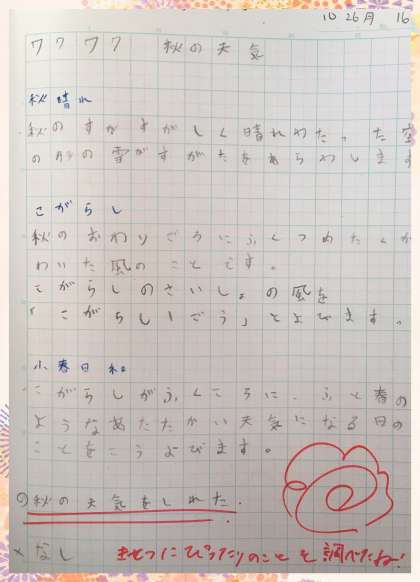 10 26月 16
ワクワク 秋の天気
秋晴れ
秋のすがすがしく晴れわたった空
の
こがらし
秋のおわりごろにふくつめたくか
わいた風のことです。
こがらしのさいしょの風を
「こがらし1ごう」とよびます。
小春日和
こがらしがふくころに、ふと春の
ようなあたたかい天気になる日の
ことをこうよびます。
秋の天気をしれた。
×なし
きせつにぴったりのことを調べたね!